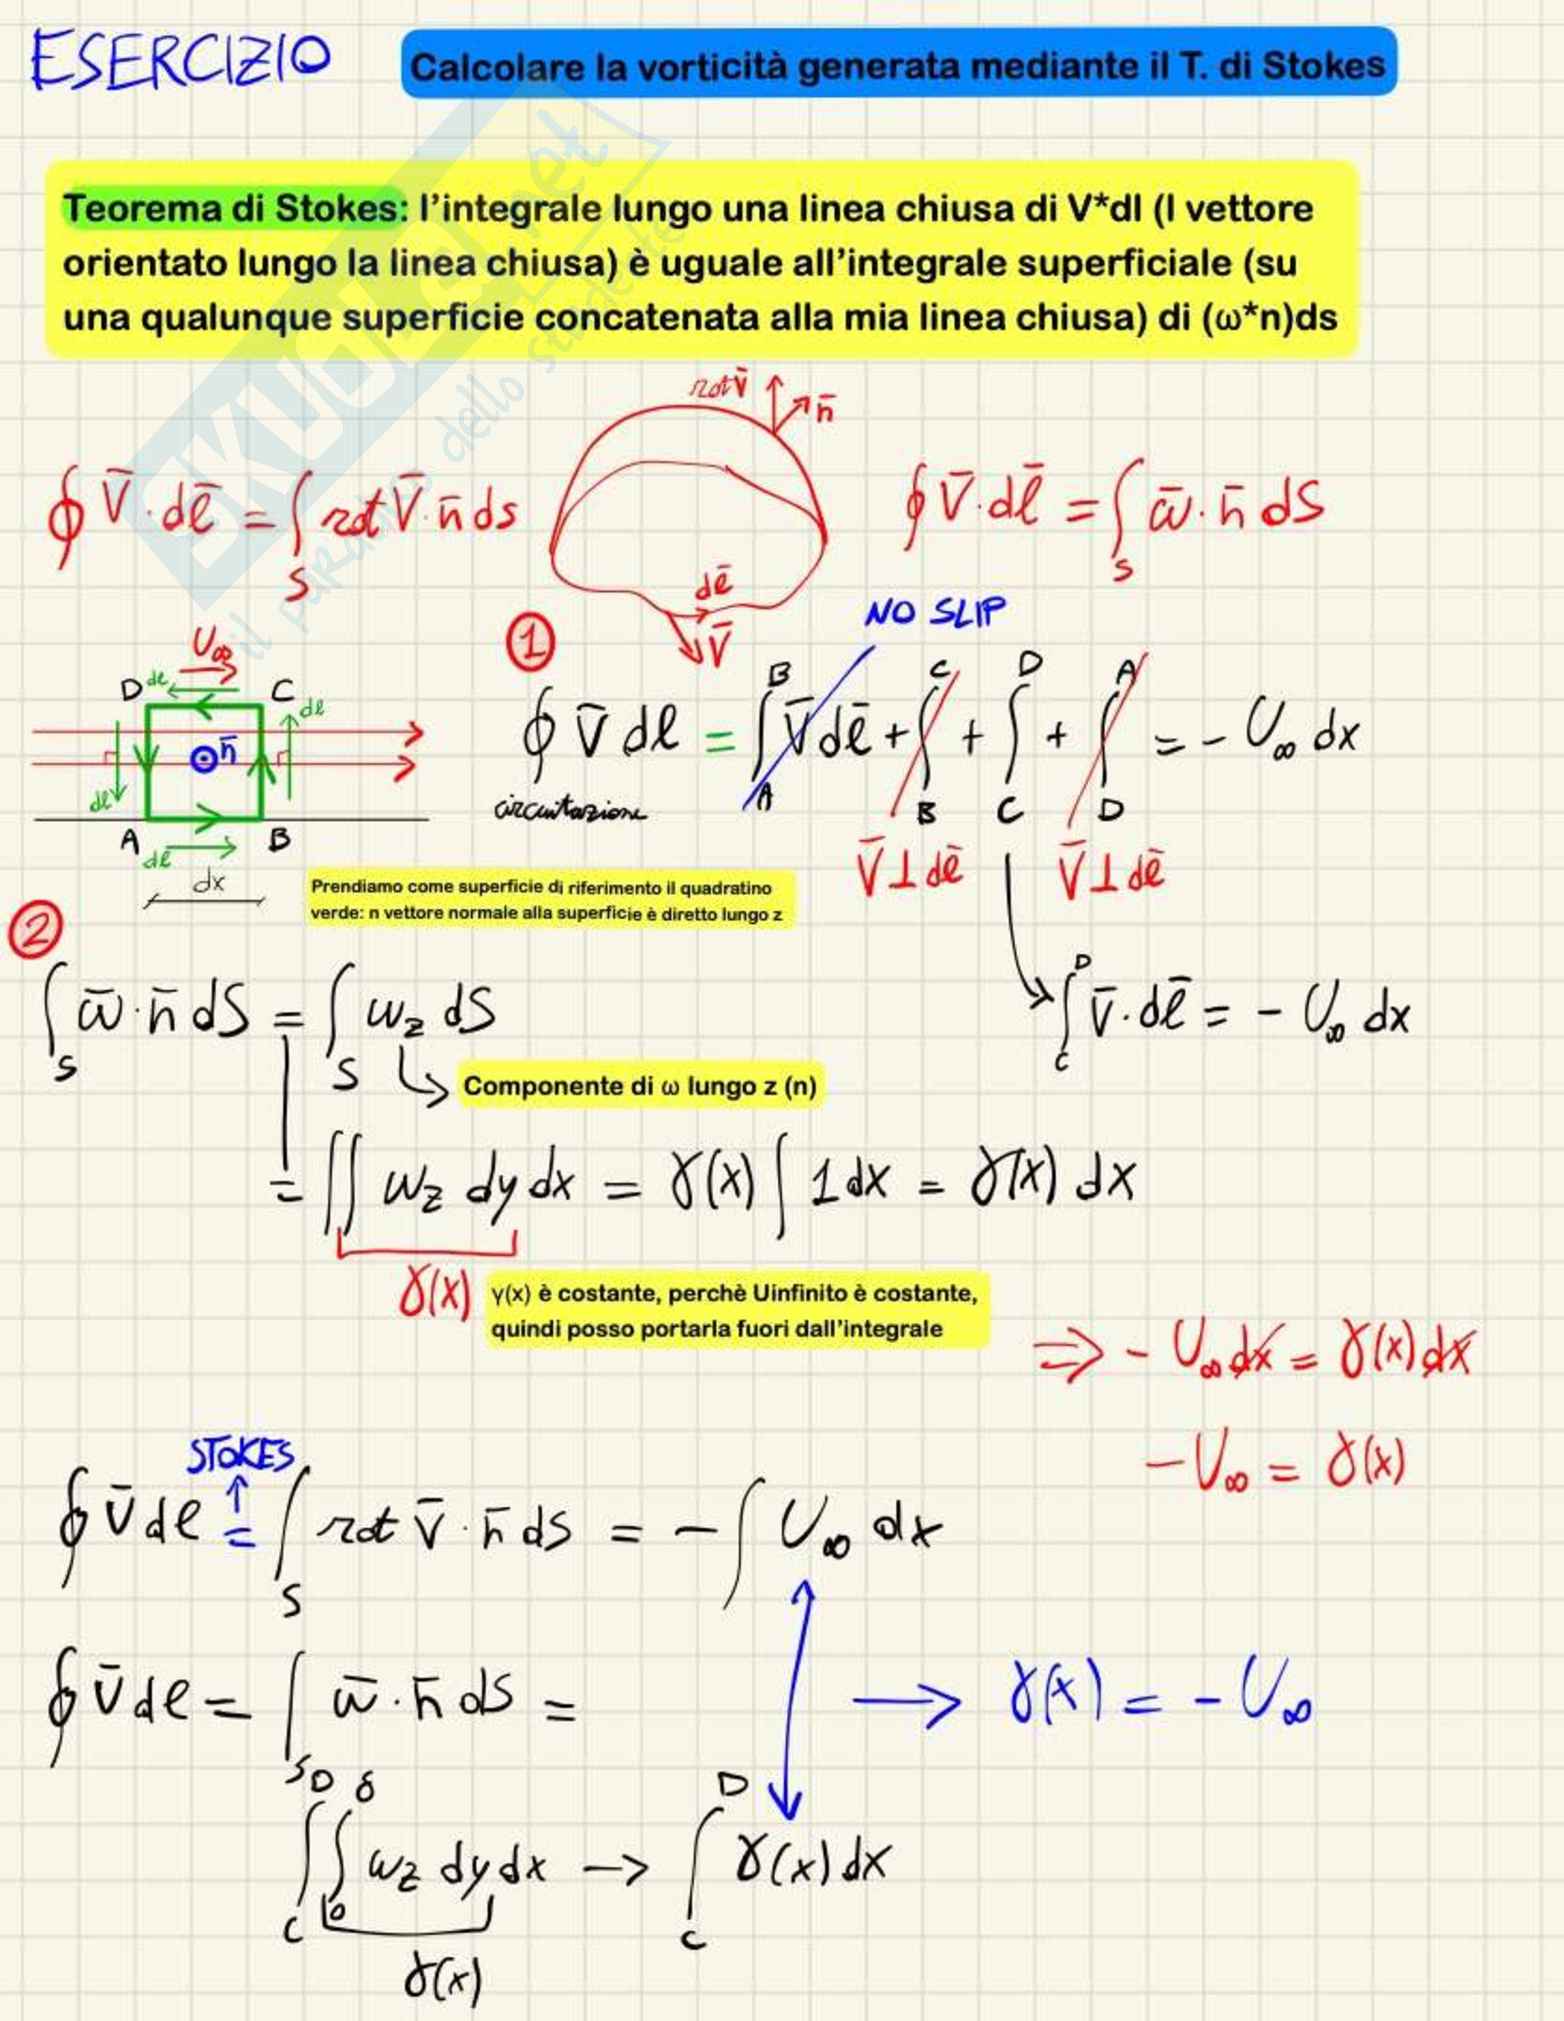 ESERCIZIO
Calcolare la vorticità generata mediante il T. di Stokes
Teorema di Stokes: l'integrale lungo una linea chiusa di V*dl (l vettore
orientato lungo la linea chiusa) è uguale all'integrale superficiale (su
una qualunque superficie concatenata alla mia linea chiusa) di (ω*n)ds
SKUOLA.net
il paradiso dello studente
rot V̄
n̄
∮ V̄·dl̄ = ∫_S rot V̄·n̄ ds
∮ V̄·dl̄ = ∫_S ω̄·n̄ dS
dl̄
V̄
NO SLIP
U∞
D dl C
dl
n̄
dl
A B
dl
dx
①
∮ V̄ dl = ∫_A^B V̄ dl̄ + ∫_B^C + ∫_C^D + ∫_D^A = - U∞ dx
circuitazione
V̄ ⊥ dl̄ V̄ ⊥ dl̄
Prendiamo come superficie di riferimento il quadratino
verde: n vettore normale alla superficie è diretto lungo z
②
∫_S ω̄·n̄ dS = ∫_S ω_z dS
∫_C^D V̄·dl̄ = - U∞ dx
Componente di ω lungo z (n)
= ∫∫ ω_z dy dx = γ(x) ∫ 1 dx = γ(x) dx
γ(x)
γ(x) è costante, perchè Uinfinito è costante,
quindi posso portarla fuori dall'integrale
⇒ - U∞ dx = γ(x) dx
- U∞ = γ(x)
STOKES
∮ V̄ dl = ∫_S rot V̄·n̄ ds = - ∫ U∞ dx
∮ V̄ dl = ∫_S ω̄·n̄ dS =
→ γ(x) = - U∞
∫_C^D ∫_0^δ ω_z dy dx → ∫_C^D γ(x) dx
γ(x)